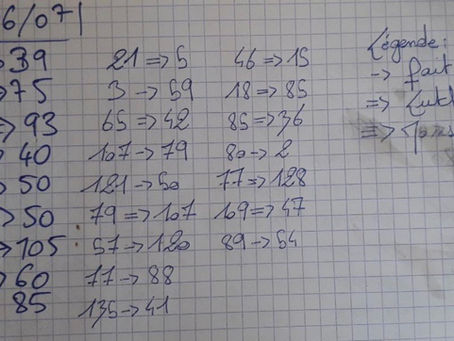 6/07
39 21 => 5 46 => 15 Légende:
75 3 -> 59 18 => 85 -> fait
93 65 => 42 85 => 36 =>
40 107 -> 79 80 -> 2
50 121 -> 50 77 => 128
50 79 => 107 109 => 47
105 57 -> 120 89 -> 54
60 77 -> 88
85 135 -> 41